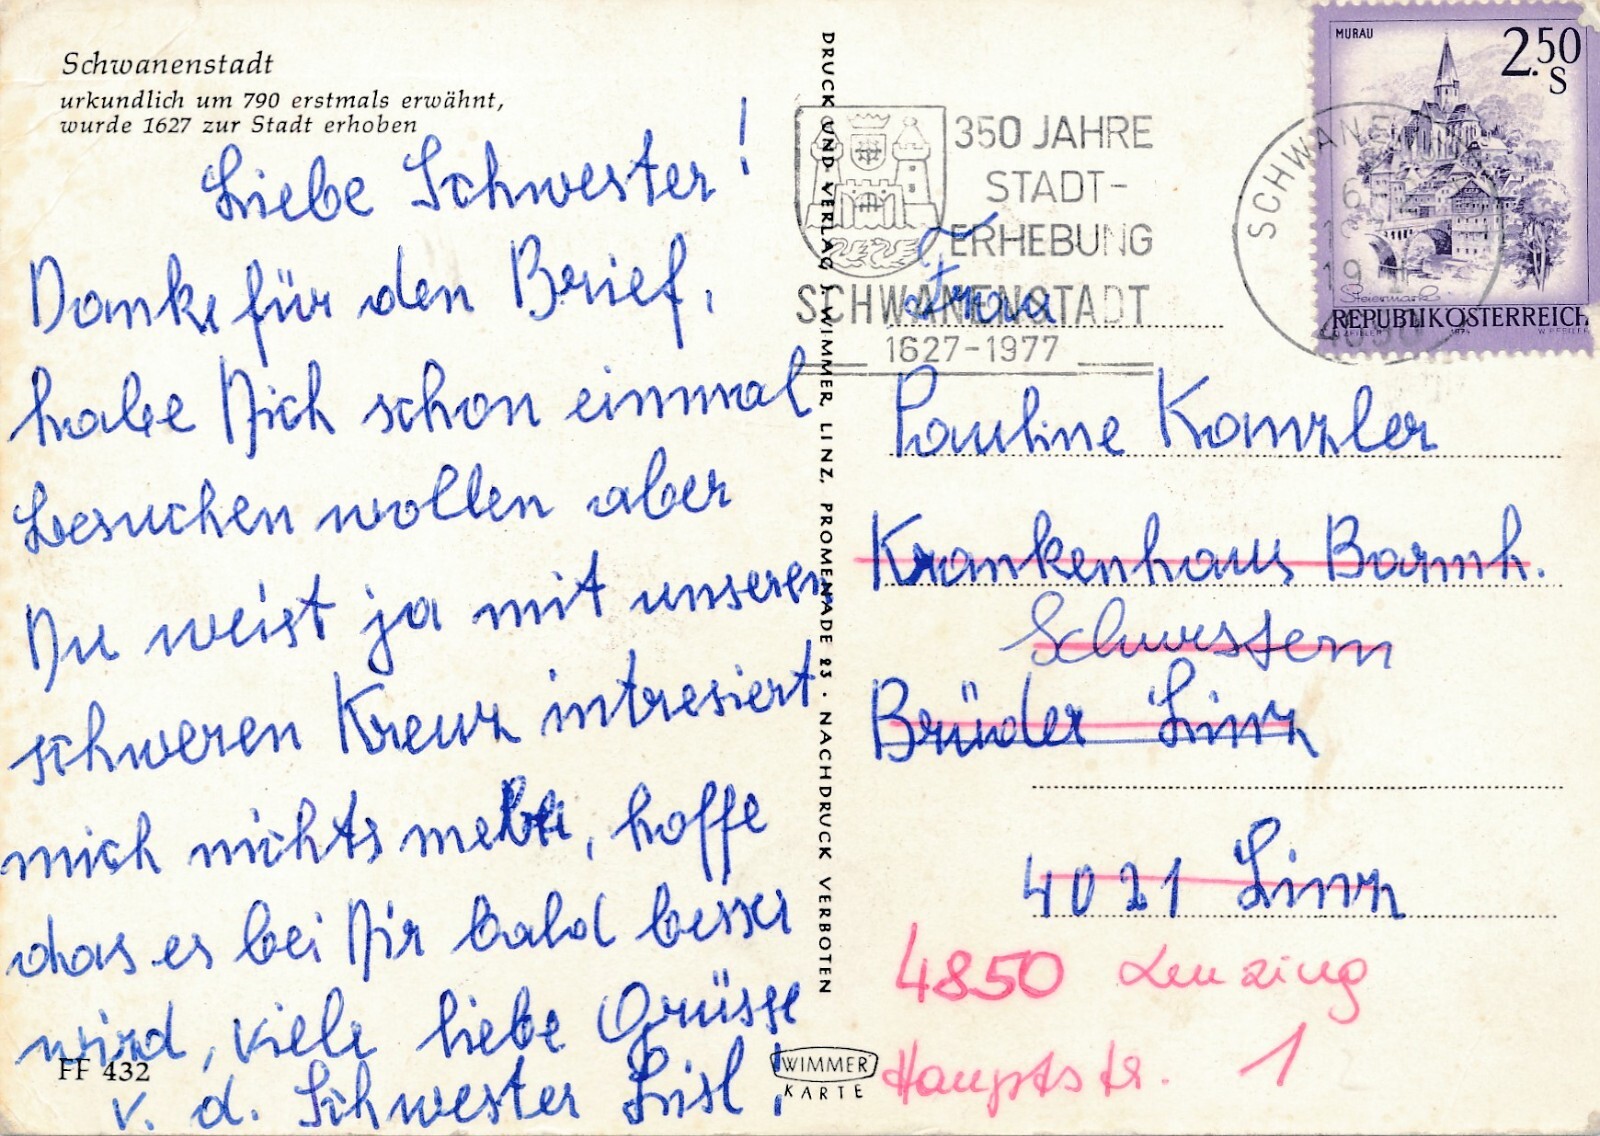 Schwanenstadt
urkundlich um 790 erstmals erwähnt,
wurde 1627 zur Stadt erhoben
Liebe Schwester!
Danke für den Brief,
habe Dich schon einmal
besuchen wollen aber
Du weist ja mit unseren
schweren Kreuz intresiert
mich nichts mehr, hoffe
das es bei Dir bald besser
wird, viele liebe Grüsse
v. d. Schwester Lisl!
FF 432
DRUCK UND VERLAG WIMMER, LINZ, PROMENADE 23 · NACHDRUCK VERBOTEN
WIMMER
KARTE
350 JAHRE
STADT-
ERHEBUNG
SCHWANENSTADT
1627-1977
MURAU
2.50
S
Steiermark
REPUBLIK ÖSTERREICH
Frau
Pauline Kanzler
Krankenhaus Barmh.
Schwestern
Brüder Linz
4021 Linz
4850 Lenzing
Hauptstr. 1